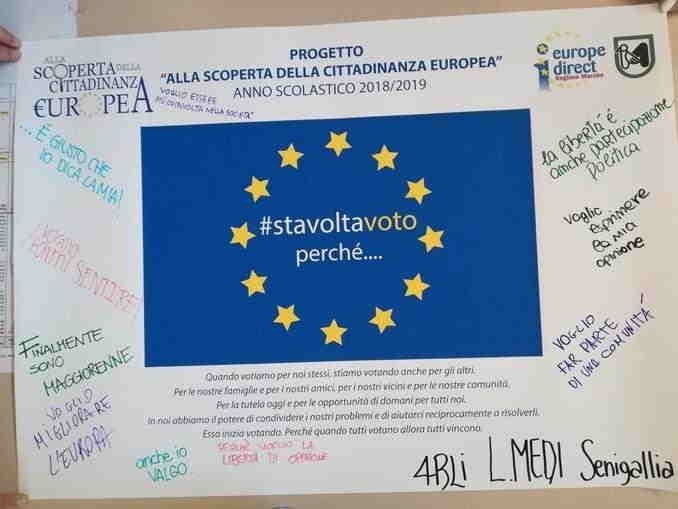 ALLA
SCOPERTA DELLA
CITTADINANZA
EUROPEA
PROGETTO
"ALLA SCOPERTA DELLA CITTADINANZA EUROPEA"
ANNO SCOLASTICO 2018/2019
europe
direct
Regione Marche
VOGLIO ESSERE
PIÙ COINVOLTA NELLA SOCIETÀ"
... È GIUSTO CHE
IO DICA LA MIA!
VOGLIO
FARMI SENTIRE!
FINALMENTE
SONO
MAGGIORENNE
VOGLIO
MIGLIORARE
L'EUROPA
anche io
VALGO
#stavoltavoto
perché....
la libertà è
anche partecipazione
politica
voglio
esprimere
la mia
opinione
VOGLIO
FAR PARTE
DI UNA COMUNITÁ
Quando votiamo per noi stessi, stiamo votando anche per gli altri.
Per le nostre famiglie e per i nostri amici, per i nostri vicini e per le nostre comunità.
Per la tutela oggi e per le opportunità di domani per tutti noi.
In noi abbiamo il potere di condividere i nostri problemi e di aiutarci reciprocamente a risolverli.
Esso inizia votando. Perché quando tutti votano allora tutti vincono.
PERCHÈ VOGLIO LA
LIBERTÀ DI OPINIONE
4BLi L.MEDI Senigallia